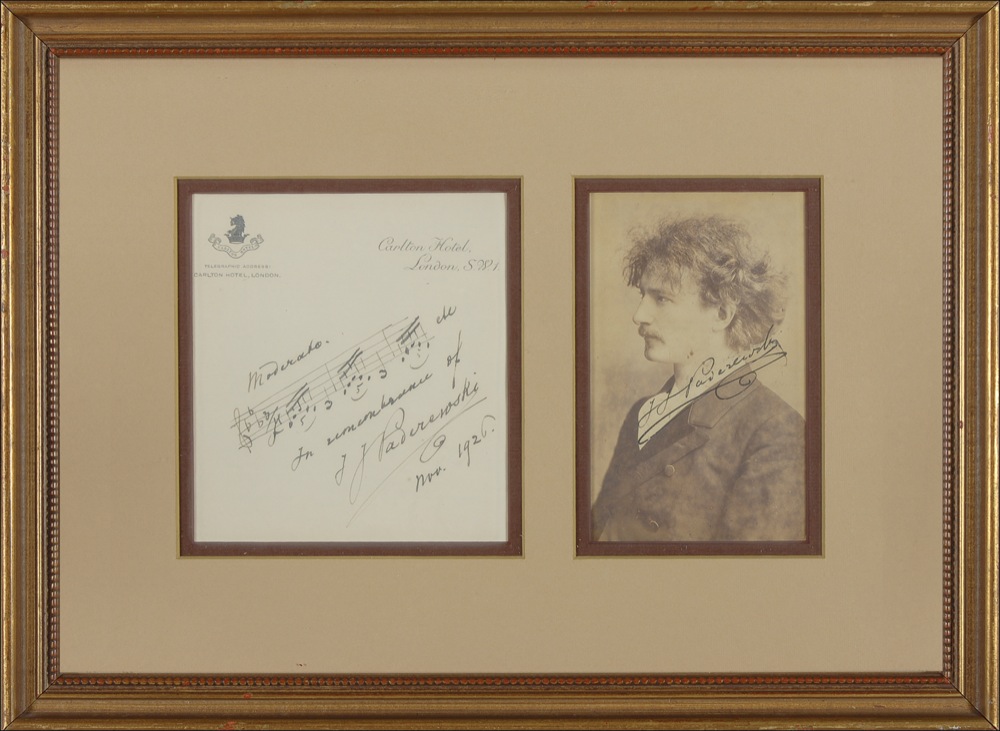 TELEGRAPHIC ADDRESS:
CARLTON HOTEL, LONDON.
Carlton Hotel,
London, S.W.1.
Moderato.
In remembrance of
J J Paderewski
Nov. 1926.
J J Paderewski